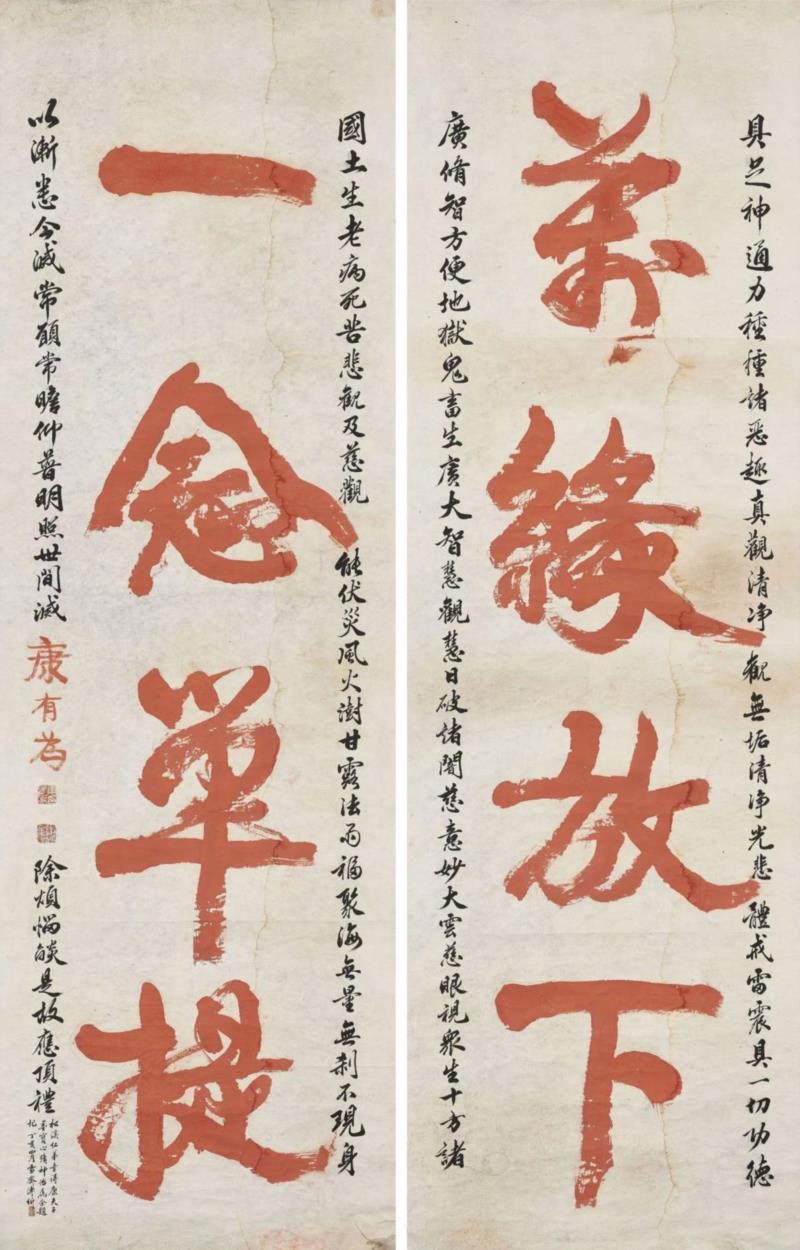 具足神通力種種諸惡趣真觀清净觀無垢清净光悲體戒雷震具一切功德
萬緣放下
廣脩智方便地獄鬼畜生廣大智慧觀慧日破諸闇慈意妙大雲慈眼視眾生十方諸
國土生老病死苦悲觀及慈觀能伏災風火澍甘露法雨福聚海無量無剎不現身
一念單提
以漸悉令滅常願常瞻仰普明照世間滅
康有為
除煩惱燄是故應頂禮